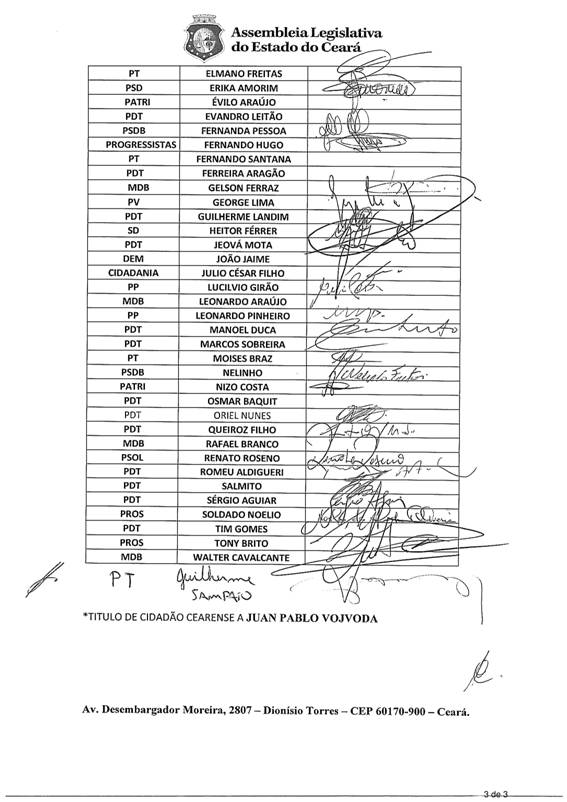 Assembleia Legislativa
do Estado do Ceará
PT ELMANO FREITAS
PSD ERIKA AMORIM
PATRI ÉVILO ARAÚJO
PDT EVANDRO LEITÃO
PSDB FERNANDA PESSOA
PROGRESSISTAS FERNANDO HUGO
PT FERNANDO SANTANA
PDT FERREIRA ARAGÃO
MDB GELSON FERRAZ
PV GEORGE LIMA
PDT GUILHERME LANDIM
SD HEITOR FÉRRER
PDT JEOVÁ MOTA
DEM JOÃO JAIME
CIDADANIA JULIO CÉSAR FILHO
PP LUCILVIO GIRÃO
MDB LEONARDO ARAÚJO
PP LEONARDO PINHEIRO
PDT MANOEL DUCA
PDT MARCOS SOBREIRA
PT MOISES BRAZ
PSDB NELINHO
PATRI NIZO COSTA
PDT OSMAR BAQUIT
PDT ORIEL NUNES
PDT QUEIROZ FILHO
MDB RAFAEL BRANCO
PSOL RENATO ROSENO
PDT ROMEU ALDIGUERI
PDT SALMITO
PDT SÉRGIO AGUIAR
PROS SOLDADO NOELIO
PDT TIM GOMES
PROS TONY BRITO
MDB WALTER CAVALCANTE
PT Guilherme
SAMPAIO
*TITULO DE CIDADÃO CEARENSE A JUAN PABLO VOJVODA
Av. Desembargador Moreira, 2807 – Dionísio Torres – CEP 60170-900 – Ceará.
3 de 3